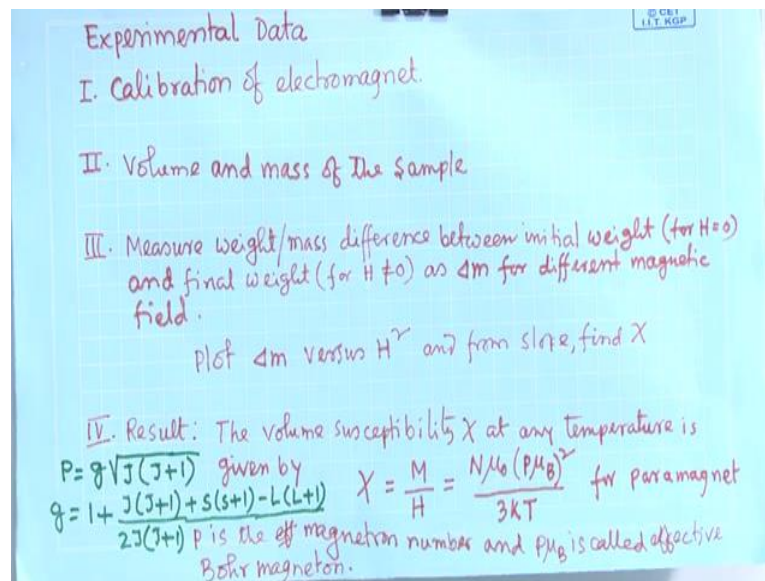 © CET
I.I.T. KGP
Experimental Data
I. Calibration of electromagnet.
II. Volume and mass of The Sample
III. Measure weight/mass difference between initial weight (for H=0)
and final weight (for H ≠ 0) as Δm for different magnetic
field.
Plot Δm versus H² and from slope, find X
IV. Result: The volume susceptibility X at any temperature is
P = g√J(J+1) given by X = M/H = Nμ₀(PμB)²/3KT for paramagnet
g = 1 + J(J+1)+S(S+1)-L(L+1)/2J(J+1)
P is the eff magnetron number and PμB is called effective
Bohr magneton.